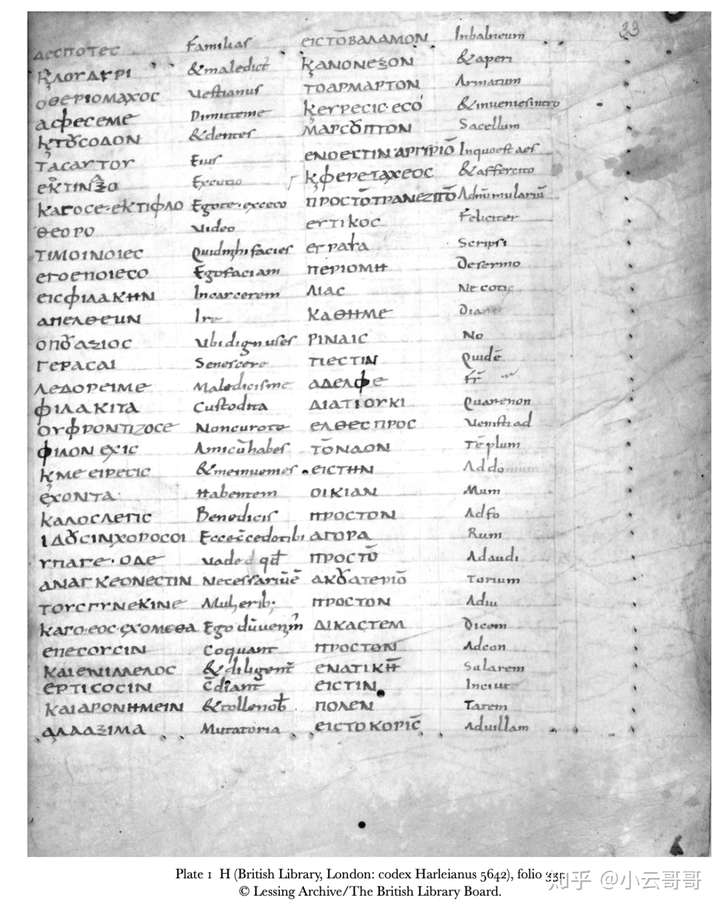 33
ΔΕСΠΟΤΕС Familias ΕΙСΤΟΒΑΛΑΜΟΝ Inbalneum
ΚΛΟΥΔΑΡΙ &maledict ΚΑΝΟΝΕΞΟΝ &aperi
ΟΘΕΡΙΟΜΑΧΟС Vestianus ΤΟΑΡΜΑΡΤΟΝ Armatum
ΑΦΕСΕΜΕ Dimitteme ΚΕΥΡΕСΙС·ΕСΟ &inveniesintro
ΚΤΟΥСΟΔΟΝ &dentes ΜΑΡСΟΥΠΤΟΝ Sacellum
ΤΑСΑΥΤΟΥ Eius ΕΝΟΕСΤΙΝΑΡΓΙΡΙΟ Inquoestaes
ΕΚΤΙΝΑΞΟ Excutio ΚΦΕΡΕΤΑΧΕΟС &affercito
ΚΑΓΟСΕ·ΕΚΤΙΦΛΟ Egote·exceco ΠΡΟСΤΟΤΡΑΠΕΖΙΤΟ Adnumulariu
ΘΕΟΡΟ Video ΕΥΤΙΚΟС Feliciter
ΤΙΜΟΙΝΟΙΕС Quidmihifacies ΕΓΡΑΨΑ Scripsi
ΕΓΟΕΠΟΙΕСΟ Egofaciam ΠΕΡΙΟΜΗ Desermo
ΕΙСΦΙΛΑΚΗΝ Incarcerem ΛΙΑС Ne cotis
ΑΠΕΛΘΕΙΝ Ire ΚΑΘΗΜΕ
ΟΠΟΥΑΞΙΟС Ubidignuses ΡΙΝΑΙС No
ΓΕΡΑСΑΙ Senescere ΤΙΕСΤΙΝ Quide
ΛΕΔΟΡΕΙΜΕ Maledicisme ΑΔΕΛΦΕ Fr
ΦΙΛΑΚΙΤΑ Custodita ΔΙΑΤΙΟΥΚΙ Quarenon
ΟΥΦΡΟΝΤΙΖΟСΕ Noncurote ΕΛΘΕСΠΡΟС Venistiad
ΦΙΛΟΝΕΧΙС Amicuhabes ΤΟΝΝΑΟΝ Teplum
ΚΜΕΕΙΡΕСΙС &meinvenies ΕΙСΤΗΝ Addomum
ΕΧΟΝΤΑ Habentem ΟΙΚΙΑΝ Mum
ΚΑΛΟСΛΕΓΙС Benedicis ΠΡΟСΤΟΝ Adfo
ΙΔΟΥСΙΝΧΟΡΟСΟΙ Eccecedotibi ΑΓΟΡΑ Rum
ΥΠΑΓΕ·ΟΔΕ ΠΡΟСΤΟ Adaudi
ΑΝΑΓΚΕΟΝΕСΤΙΝ Necessariue ΑΚΟΥΑΤΕΡΙΟ Torium
ΤΟΥСΓΥΝΕΚΙΝΕ Mulierib; ΠΡΟСΤΟΝ Adiu
ΚΑΓΟ·ΕΟС·СΧΟΜΕΘΑ ΔΙΚΑСΤΕΜ Dicem
ΕΠΕСΟΥСΙΝ Coquant ΠΡΟСΤΟΝ Adcon
ΚΑΙΕΝΙΛΛΕΛΟС &diligent ΕΝΑΤΙΚΗ Sularem
ΕΡΤΙСΟСΙΝ Cdiant ΕΙСΤΙΝ Inciui
ΚΑΙΑΡΟΝΗΜΕΙΝ &tollenob ΠΟΛΕΝ Tatem
ΑΛΛΑΞΙΜΑ Mutatoria ΕΙСΤΟΚΟΡΙС Aduillam
Plate 1 H (British Library, London: codex Harleianus 5642), folio 33r.
© Lessing Archive/The British Library Board.
知乎 @小云哥哥